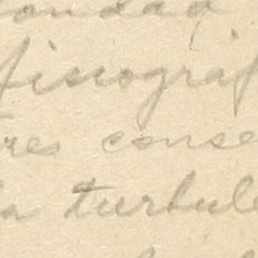 ondad
fisiográf
res conse
la turbule